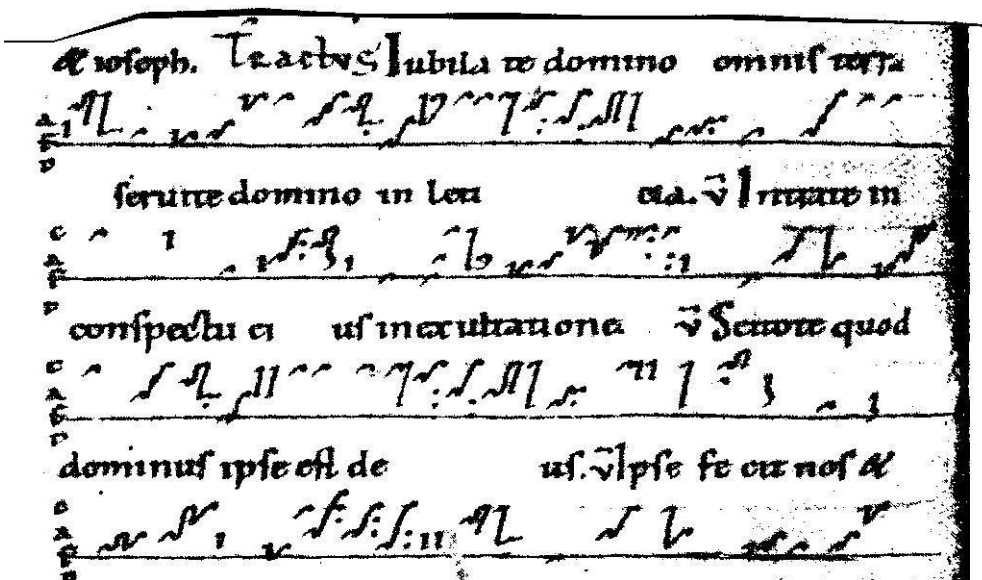 & ioseph. Tractus Iubila te domino omnis terra
a f d
seruite domino in leti cia. v̄ Intrate in
c a f d
conspectu ei us in exultatione v̄ Scitote quod
c a f d
dominus ipse est de us. v̄ Ipse fe cit nos &
c a f d